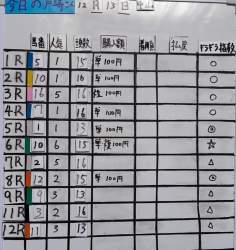 今日の 12月13日
馬番 人気 頭数 購入額 着順 払戻 ドキドキ指数
1R 5 1 15 単100円 ○
2R 10 1 16 単100円 ○
3R 16 5 16 複100円 ○
4R 7 1 16 単100円 ○
5R 1 1 13 単100円 ◎
6R 10 6 15 単複100円 ☆
7R 2 5 16 △
8R 12 2 15 単100円 ◎
9R 9 5 13 △
11R 3 2 16 △
12R 11 3 13 △